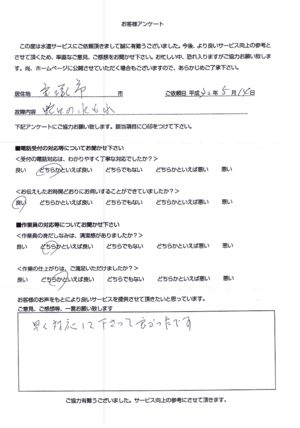 お客様アンケート
この度は水道サービスにご依頼頂きまして誠に有難うございました。今後、より良いサービス向上の参考と
させて頂くため、率直なご意見、ご感想をお聞かせ下さい。お忙しい中、恐れ入りますがご協力お願い致しま
す。尚、ホームページに公開させていただく場合もございますので、あらかじめご了承下さい。
居住地 宝塚市 ご依頼日 平成 年 5月 日
故障内容 蛇口の水もれ
下記アンケートにご協力お願い致します。該当項目に〇印をつけて下さい。
■電話受付の対応等についてお聞かせ下さい
<受付の電話対応は、わかりやすく丁寧な対応でしたか?>
良い どちらかといえば良い どちらでもない どちらかといえば悪い 悪い
<お伝えしたお時間どおりにお伺いすることができていましたか?>
良い どちらかといえば良い どちらでもない どちらかといえば悪い 悪い
■作業員の対応等についてお聞かせ下さい
<作業員の身だしなみは、清潔感がありましたか?>
良い どちらかといえば良い どちらでもない どちらかといえば悪い 悪い
<作業の仕上がりは、ご満足いただけましたか?>
良い どちらかといえば良い どちらでもない どちらかといえば悪い 悪い
お客様のお声をもとにより良いサービスを提供させて頂きたいと思っています。
ご意見、ご感想等、一言お願い致します
早く対応して下さって良かったです
ご協力有難うございました。サービス向上の参考にさせて頂きます。